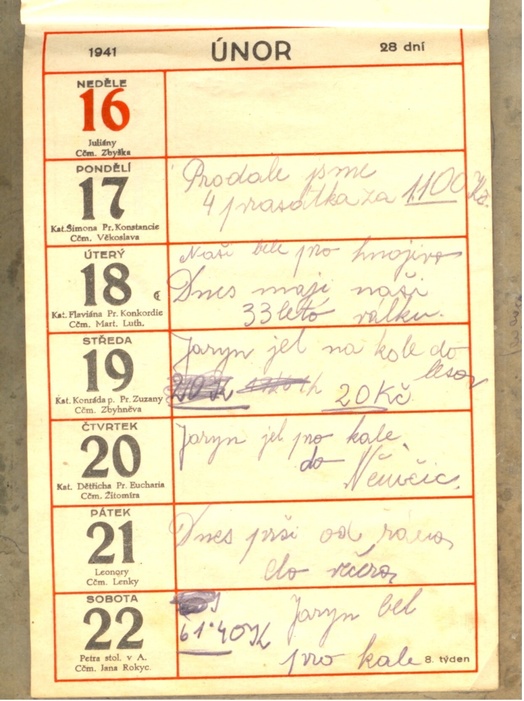 1941 ÚNOR 28 dní
NEDĚLE
16
Juliány
Ččm. Zbyška
PONDĚLÍ
17
Kat. Šimona Pr. Konstancie
Ččm. Věkoslava
Prodale jsme
4 prasátka za 1100 Kč.
ÚTERÝ
18
Kat. Flaviána Pr. Konkordie
Ččm. Mart. Luth.
Naši bele pro hnojivo
Dnes mají naši
33 leto válku.
STŘEDA
19
Kat. Konráda p. Pr. Zuzany
Ččm. Zbyhněva
Jaryn jel na kole do
lesa
20 Kč
ČTVRTEK
20
Kat. Dětřicha Pr. Eucharia
Ččm. Žitomíra
Jaryn jel pro kale
do
PÁTEK
21
Leonory
Ččm. Lenky
Dnes prší od rána
do večera
SOBOTA
22
Petra stol. v A.
Ččm. Jana Rokyc.
61·40 K Jaryn bel
pro kale
8. týden